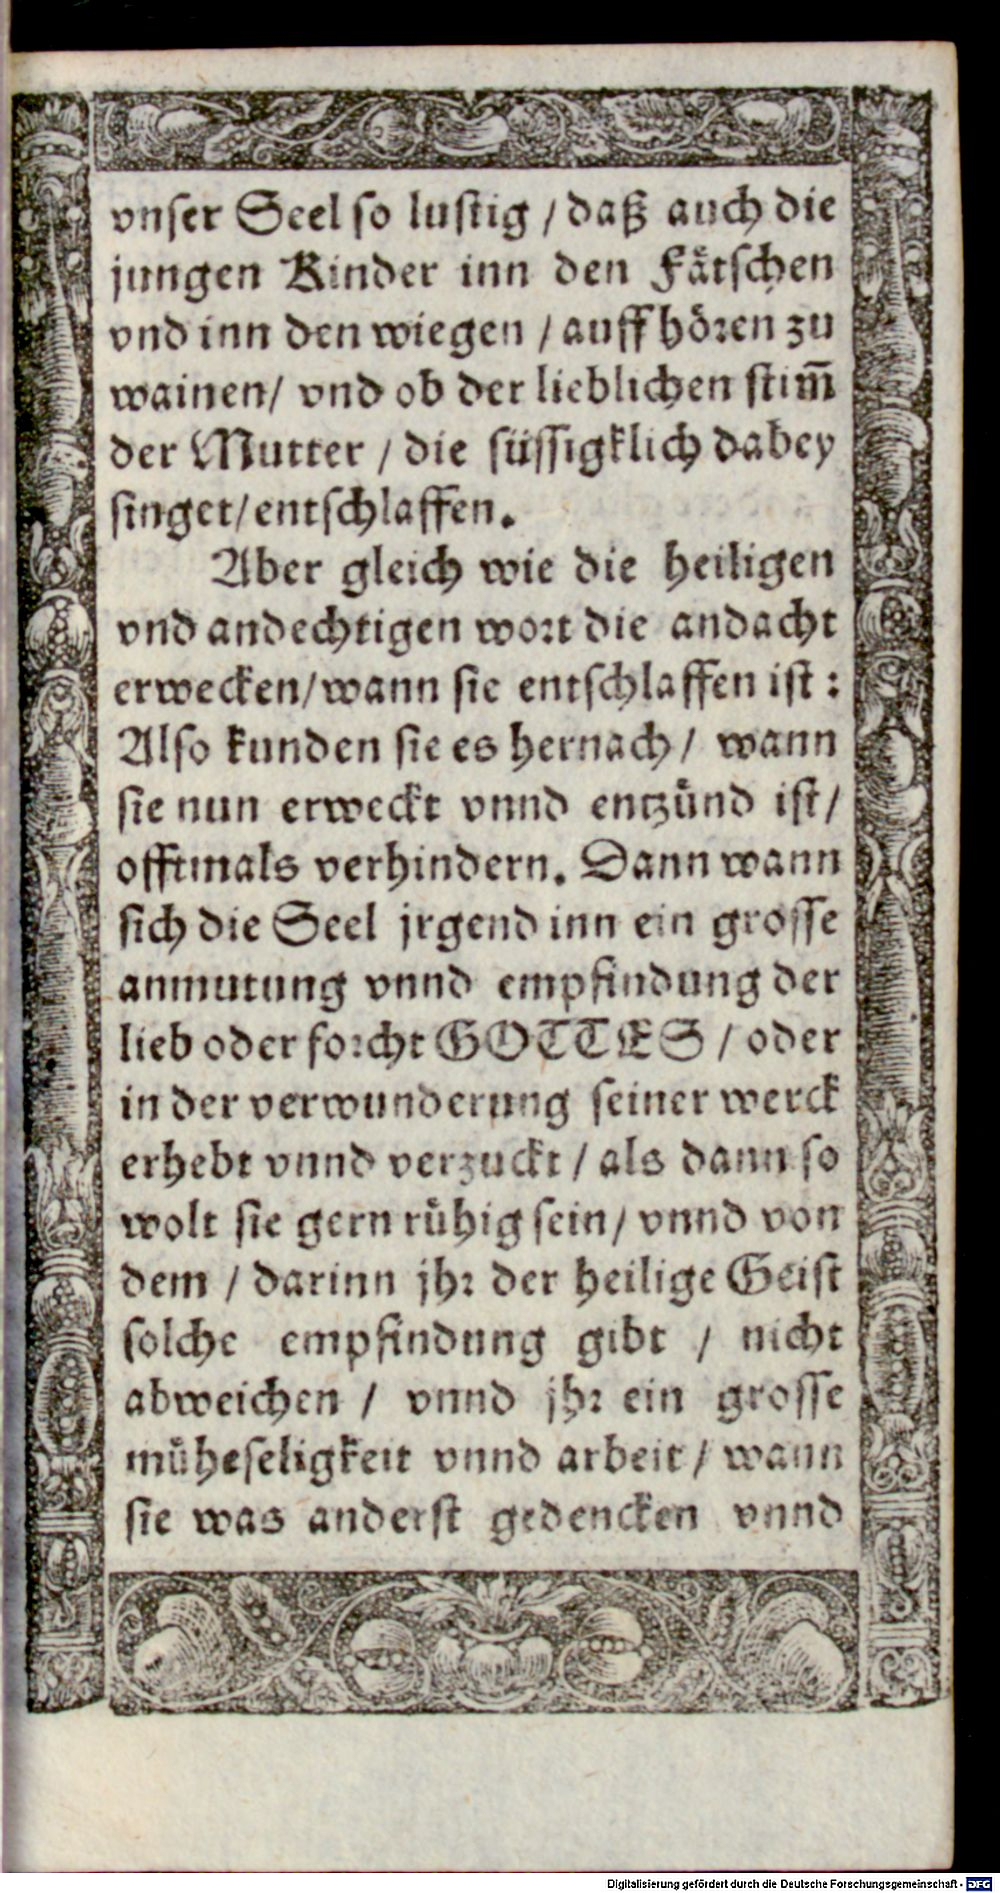 vnser Seel so lustig / daß auch die
jungen Kinder inn den Fätschen
vnd inn den wiegen / auff hören zu
wainen/ vnd ob der lieblichen stim̄
der Mutter / die süssigklich dabey
singet/entschlaffen.
Aber gleich wie die heiligen
vnd andechtigen wort die andacht
erwecken/wann sie entschlaffen ist:
Also kunden sie es hernach/ wann
sie nun erweckt vnnd entzünd ist/
offtmals verhindern. Dann wann
sich die Seel jrgend inn ein grosse
anmutung vnnd empfindung der
lieb oder forcht GOTTES / oder
in der verwunderung seiner werck
erhebt vnnd verzuckt / als dann so
wolt sie gern rühig sein/ vnnd von
dem / darinn jhr der heilige Geist
solche empfindung gibt / nicht
abweichen / vnnd jhr ein grosse
müheseligkeit vnnd arbeit / wann
sie was anderst gedencken vnnd
Digitalisierung gefördert durch die Deutsche Forschungsgemeinschaft - DFG